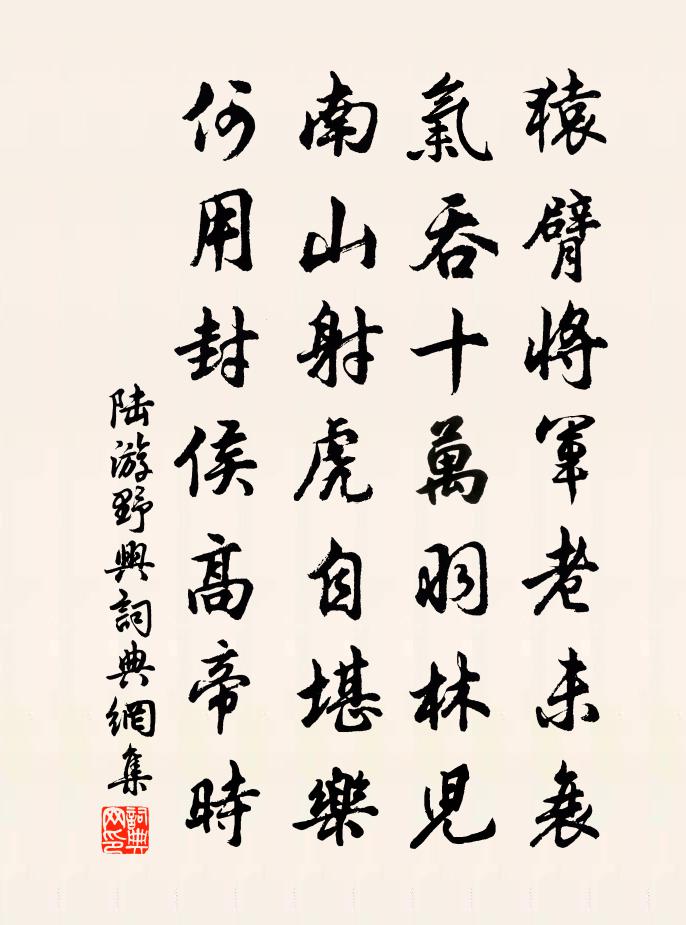 猿臂將軍老未衰
氣吞十萬羽林兒
南山射虎自堪樂
何用封侯高帝時
陸游野興詞典網集
詞典網印